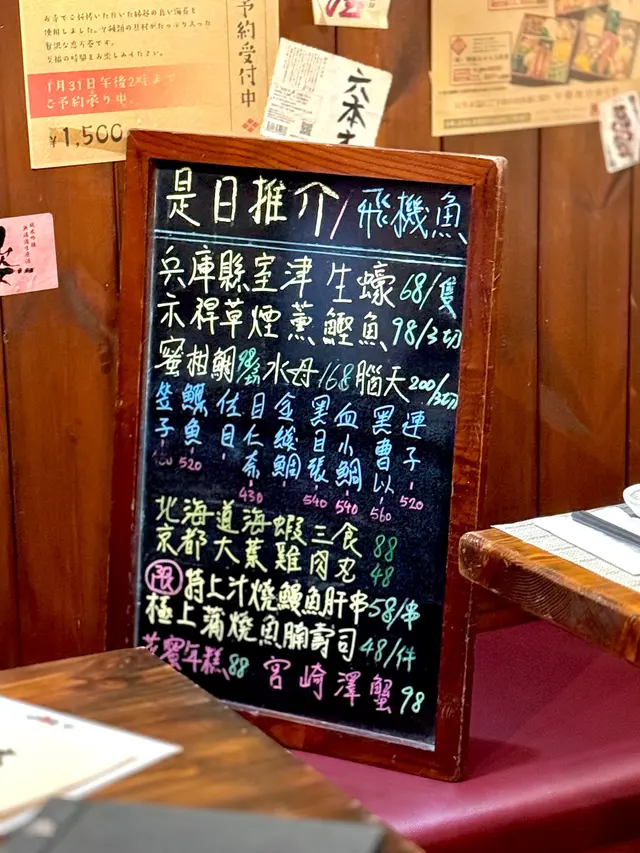 予約受付中
使用しました。7種類の具材がたっぷり入った
贅沢な恵方巻です。
1月31日午後2時まで
ご予約承り中
¥1,500
六本木
是日推介/飛機魚
兵庫縣室津 生蠔 68/隻
禾稈草煙薰鰹魚 98/3切
蜜柑鯛 水母 168 腦天 200/3切
笠子
鰹魚 520
佐目
目仁奈 430
金線鯛
黑目張 540
血小鯛 540
黑曹以 560
連子 520
北海道海蝦三食 88
京都大葉雞肉丸 48
限 特上汁燒鰻魚肝串 58/串
極上蒲燒魚腩壽司 48/件
蜜年糕 88 宮崎澤蟹 98